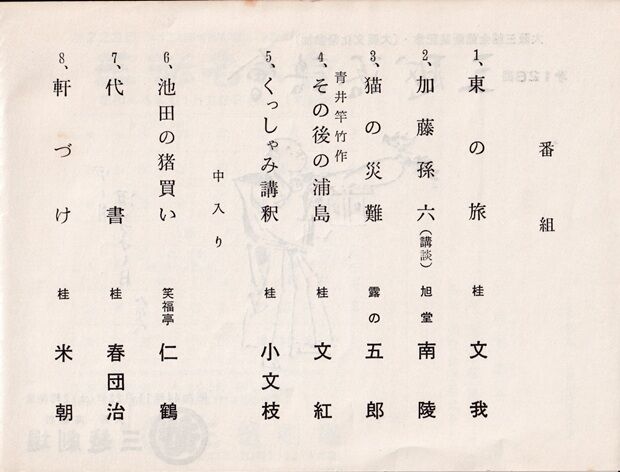 番組
1、東の旅 桂 文我
2、加藤孫六（講談） 旭堂 南陵
3、猫の災難 露の 五郎
青井竿竹作
4、その後の浦島 桂 文紅
5、くっしゃみ講釈 桂 小文枝
中入り
6、池田の猪買い 笑福亭 仁鶴
7、代書 桂 春団治
8、軒づけ 桂 米朝